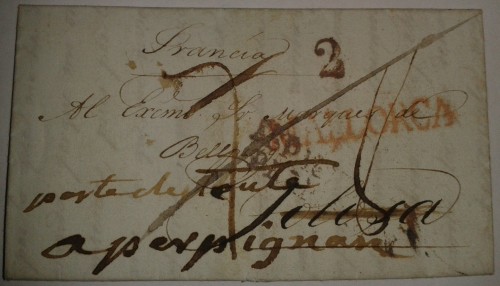 Francia
2
Al Exmo. Sr. Marques de
MALLORCA
Bell
poste restante
Tolosa
a perpignan